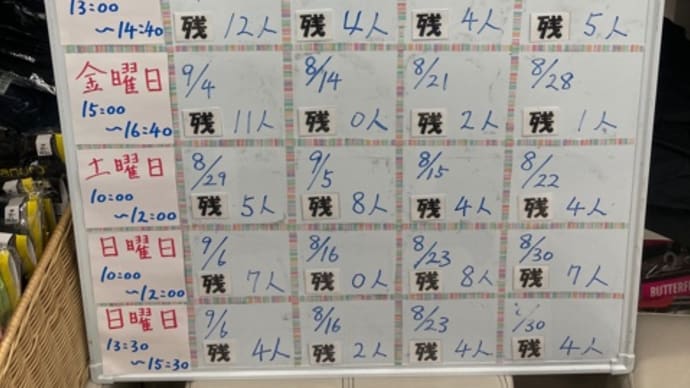 13:00
~14:40 残12人 残4人 残4人 残5人
金曜日 9/4 8/14 8/21 8/28
15:00
~16:40 残11人 残0人 残2人 残1人
土曜日 8/29 9/5 8/15 8/22
10:00
~12:00 残5人 残8人 残4人 残4人
日曜日 9/6 8/16 8/23 8/30
10:00
~12:00 残7人 残0人 残8人 残7人
日曜日 9/6 8/16 8/23 /30
13:30
~15:30 残4人 残2人 残4人 残4人
BUTTERF